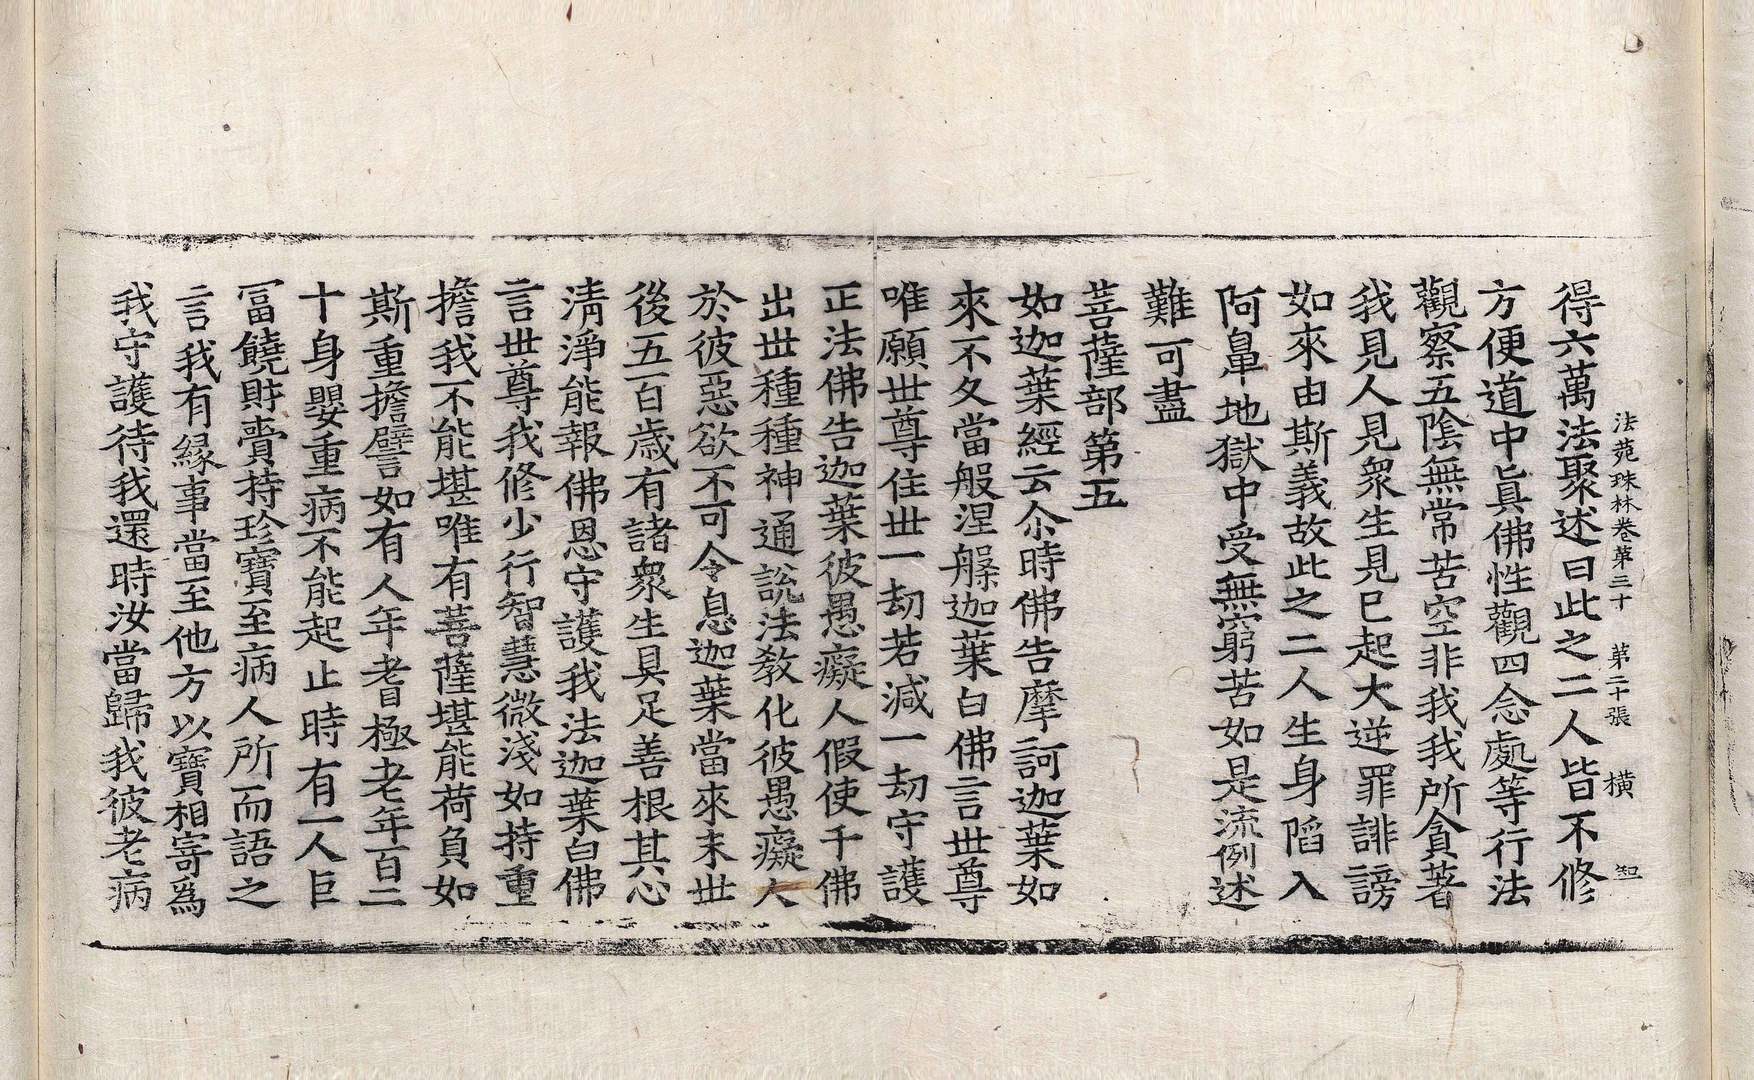 法苑珠林卷第三十　第二十張　橫
得六萬法聚述曰此之二人皆不修
方便道中眞佛性觀四念處等行法
觀察五陰無常苦空非我我所貪著
我見人見衆生見已起大逆罪誹謗
如來由斯義故此之二人生身陷入
阿鼻地獄中受無窮苦如是流例述
難可盡
菩薩部第五
如迦葉經云尒時佛告摩訶迦葉如
來不久當般涅槃迦葉白佛言世尊
唯願世尊住世一劫若減一劫守護
正法佛告迦葉彼愚癡人假使千佛
出世種種神通說法教化彼愚癡人
於彼惡欲不可令息迦葉當來末世
後五百歲有諸衆生具足善根其心
淸淨能報佛恩守護我法迦葉白佛
言世尊我修少行智慧微淺如持重
擔我不能堪唯有菩薩堪能荷負如
斯重擔譬如有人年耆極老年百二
十身嬰重病不能起止時有一人巨
冨饒財賷持珍寶至病人所而語之
言我有緣事當至他方以寶相寄爲
我守護待我還時汝當歸我彼老病